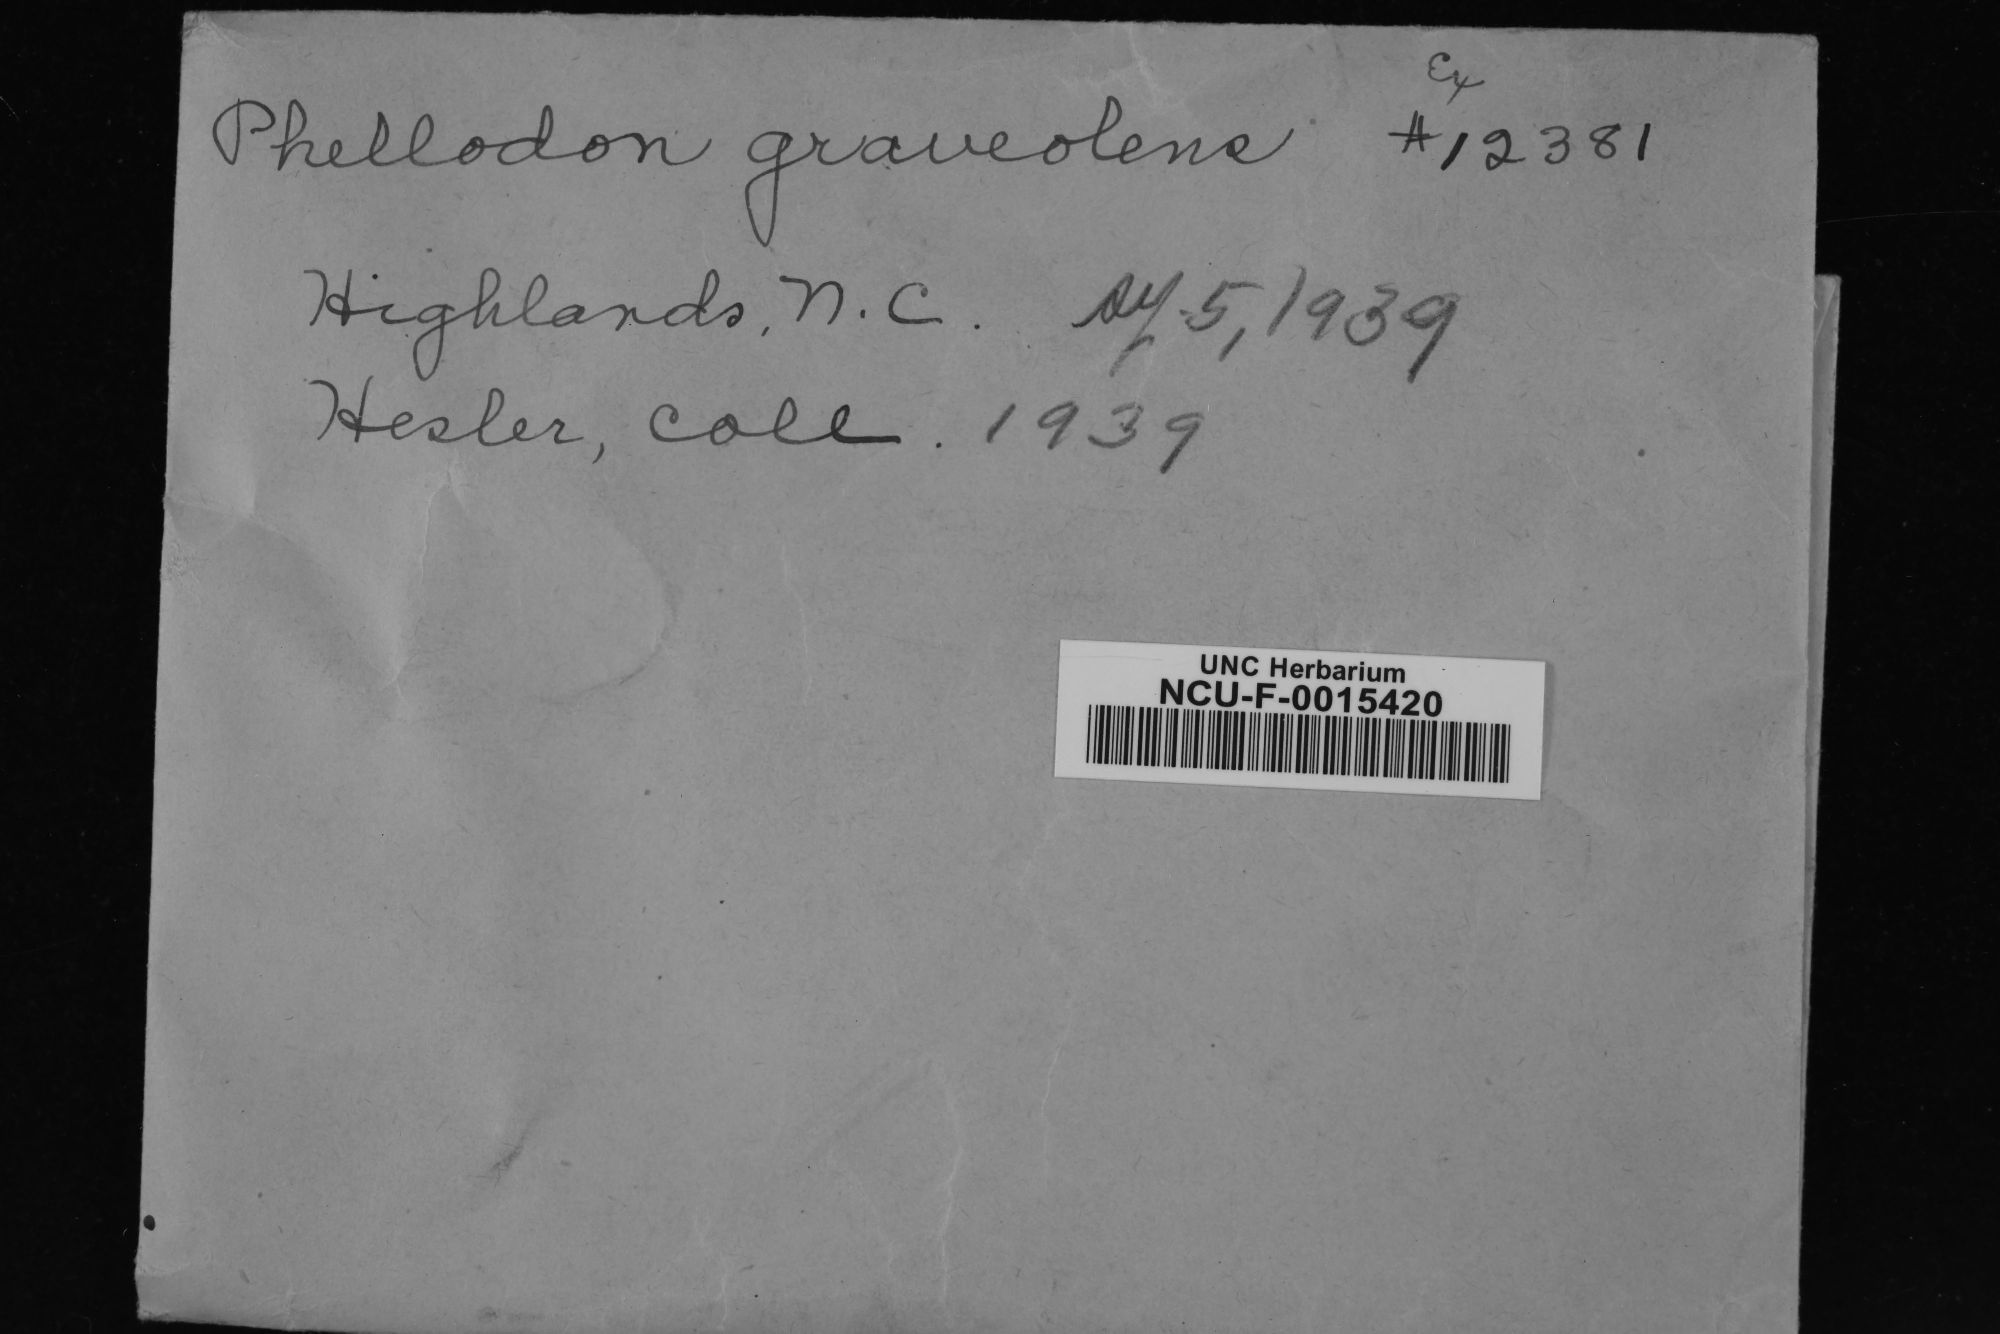 Ex
Phellodon graveolens #12381
Highlands, N.C. 5, 1939
Hesler, coll. 1939
UNC Herbarium
NCU-F-0015420